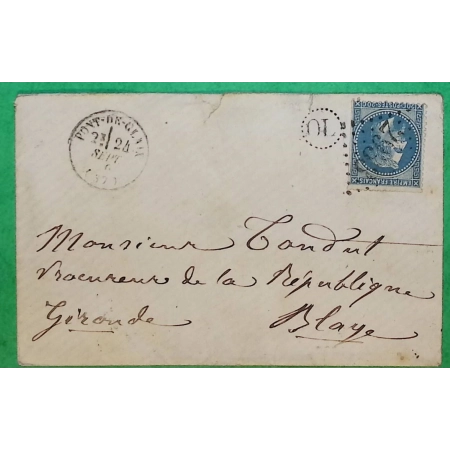 PONT-DE-CLAIX
2E
24
SEPT
71
OL
Monsieur Tondut
Procureur de la République
Gironde Blaye